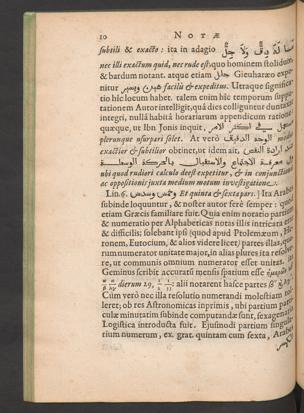 10 NOTÆ
subtili & exacto: ita in adagio
nec illi exactum quid, nec rude est, quo hominem stolidum
& bardum notant. atque etiam جليل Gieuharæo expo-
nitur هين ويسير facile & expeditum. Utraque significa-
tio hîc locum habet. talem enim hîc temporum supputationem
rationem Autor intelligit, quâ dies colliguntur duntaxat
integri, nullâ habitâ horariarum appendicum ratione
quæque, ut Ibn Jonis inquit,
plerunque usurpari solet. At verò الوجه الدقيق
exactior & subtilior obtinet, ut idem ait,
معرفة الاجتماع والاستقبال بالحركة الوسطة
ubi quod rudiori calculo deest expetitur, & in conjunctionum
ac oppositionis juxta medium motum investigatione.
Lin. 6. وخمس وسدس Et quinta & sexta pars.] Ita Arabes
subinde loquuntur, & noster autor ferè semper: quod
etiam Græcis familiare fuit. Quia enim notatio partium
& numeratio per Alphabeticas notas illis intricata erat
& difficilis; solebant ipsi (quod apud Ptolemæum, Hieronem,
Eutocium, & alios videre licet) partes illas, quarum
numerator unitate major, in alias plures ita resolvere,
ut communis omnium numerator esset unitas.
Geminus scribit accuratû mensis spatium esse
dierum 29, alii notarent hasce partes
Cum verò nec illa resolutio numerandi molestiam tolleret;
ob res Astronomicas inprimis, ubi partium particulæ
minutatim subinde computandæ sunt, sexagenaria
Logistica introducta fuit. Ejusmodi partium singularium
numerum, ex. grat. quintam cum sexta, Arabes